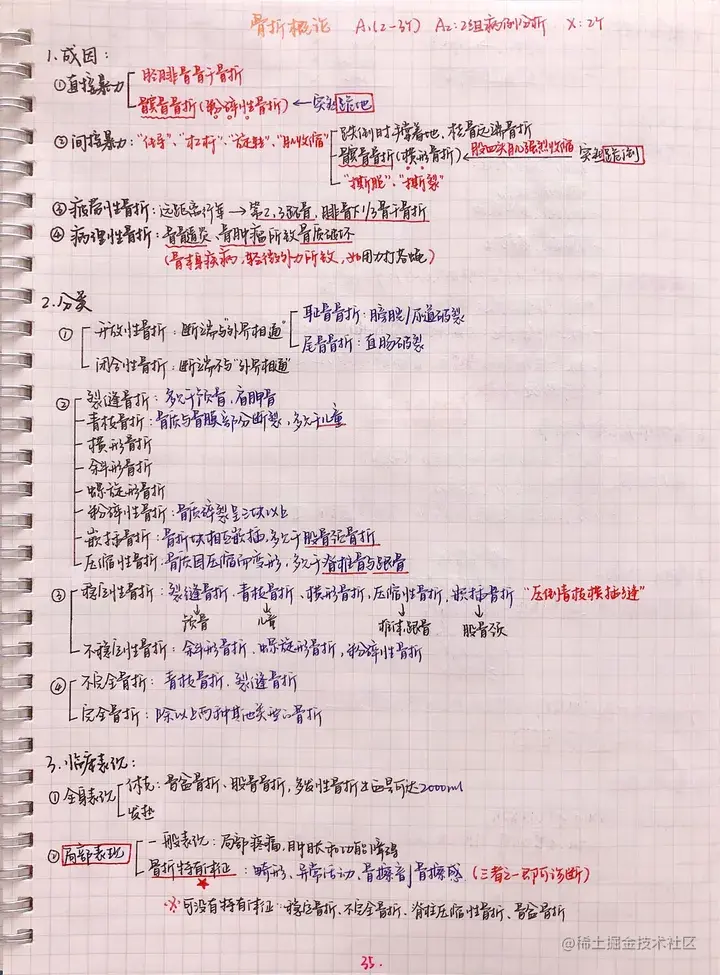 骨折概论 A1(2-3个) A2:2组病例分析 X:2个
1.成因:
①直接暴力 胫腓骨骨干骨折
髌骨骨折(粉碎性骨折)←突然跪地
②间接暴力:"传导"、"杠杆"、"旋转"、"肌收缩" 跌倒时手撑着地,桡骨远端骨折
髌骨骨折(横形骨折)←股四头肌强烈收缩 突然跪倒
"撕脱"、"撕裂"
③疲劳性骨折:远距离行军→第2,3跖骨,腓骨下1/3骨干骨折
④病理性骨折:骨髓炎、骨肿瘤所致骨质破坏
(骨本身疾病,轻微的外力所致,如用力打苍蝇)
2.分类
① 开放性骨折:断端与"外界相通" 耻骨骨折:膀胱/尿道破裂
尾骨骨折:直肠破裂
闭合性骨折:断端不与"外界相通"
② 裂缝骨折:多见于颅骨,肩胛骨
青枝骨折:骨质与骨膜部分断裂,多见于儿童
横形骨折
斜形骨折
螺旋形骨折
粉碎性骨折:骨质碎裂呈三块以上
嵌插骨折:骨折块相互嵌插,多见于股骨颈骨折
压缩性骨折:骨质因压缩而变形,多见于脊椎骨与跟骨
③ 稳定性骨折:裂缝骨折、青枝骨折、横形骨折,压缩性骨折,嵌插骨折 "压倒青枝横插缝"
颅骨 儿童 椎体,跟骨 股骨颈
不稳定性骨折:斜形骨折、螺旋形骨折,粉碎性骨折
④ 不完全骨折:青枝骨折、裂缝骨折
完全骨折:除以上两种其他类型的骨折
3.临床表现:
①全身表现 休克:骨盆骨折、股骨骨折,多发性骨折出血量可达2000ml
发热
②局部表现 一般表现:局部疼痛,肿胀和功能障碍
骨折特有体征:畸形、异常活动、骨擦音/骨擦感 (三者之一即可诊断)
※可没有特有体征:稳定骨折、不完全骨折、脊柱压缩性骨折、骨盆骨折
35.
@稀土掘金技术社区